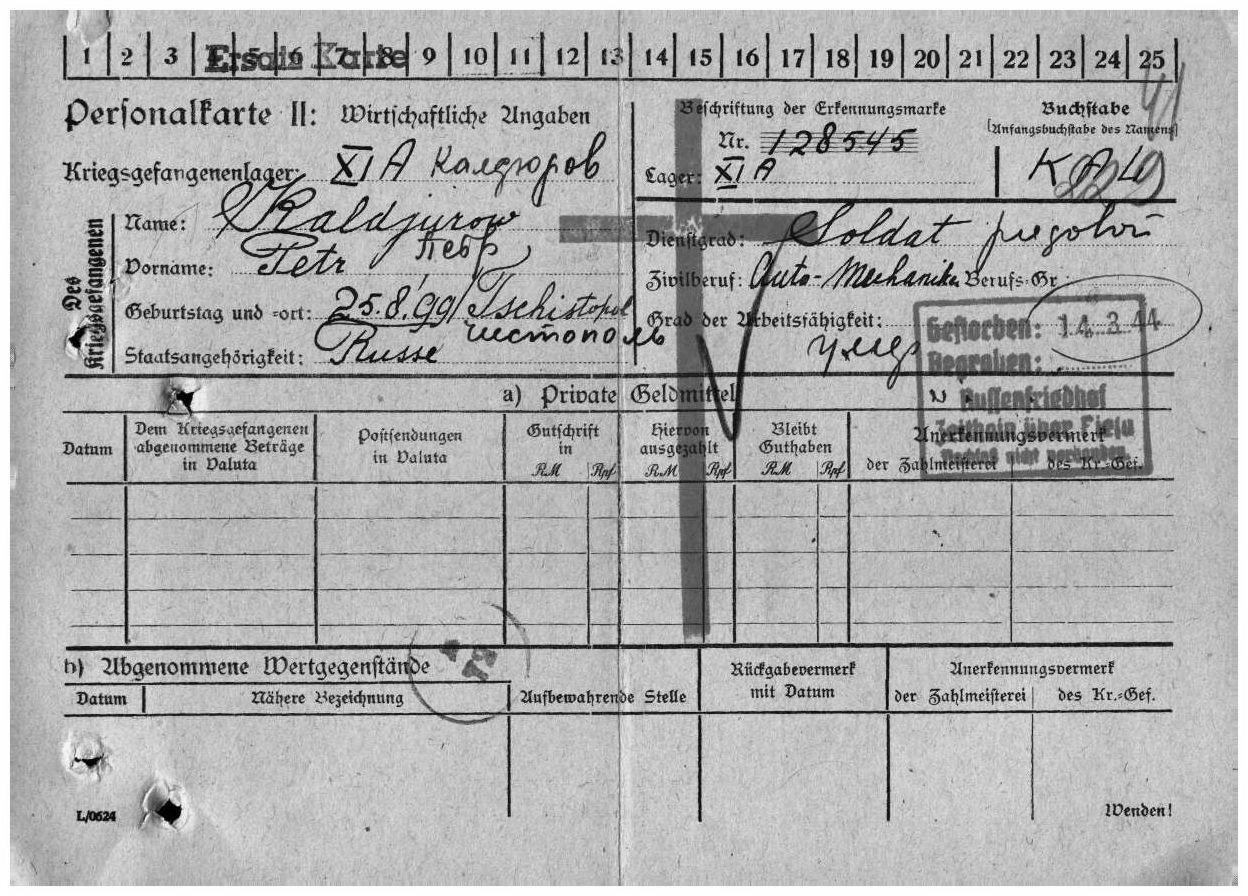 1 2 3 4 5 6 7 8 9 10 11 12 13 14 15 16 17 18 19 20 21 22 23 24 25
Ersatz Karte
Personalkarte II: Wirtschaftliche Angaben
Beschriftung der Erkennungsmarke
Nr. 128545
Lager: XI A
Buchstabe
(Anfangsbuchstabe des Namens)
KAL
Kriegsgefangenenlager: XI A Калдюров
Des Kriegsgefangenen
Name: Kaldjurow
Vorname: Petr Петр
Geburtstag und =ort: 25.8.99 / Tschistopol
чистополь
Staatsangehörigkeit: Russe
Dienstgrad: Soldat рядовой
Zivilberuf: Auto-Mechaniker Berufs-Gr.
Grad der Arbeitsfähigkeit:
умер
Gestorben: 14.3.44
Begraben:
Russenfriedhof
Zeithain über Riesa
Nachlaß nicht vorhanden
a) Private Geldmittel
Datum
Dem Kriegsgefangenen abgenommene Beträge in Valuta
Postsendungen in Valuta
Gutschrift in
RM Rpf
Hiervon ausgezahlt
RM Rpf
Bleibt Guthaben
RM Rpf
Anerkennungsvermerk
der Zahlmeisterei des Kr.=Gef.
b) Abgenommene Wertgegenstände
Datum Nähere Bezeichnung
Aufbewahrende Stelle
Rückgabevermerk mit Datum
Anerkennungsvermerk
der Zahlmeisterei des Kr.=Gef.
L/0624
Wenden!